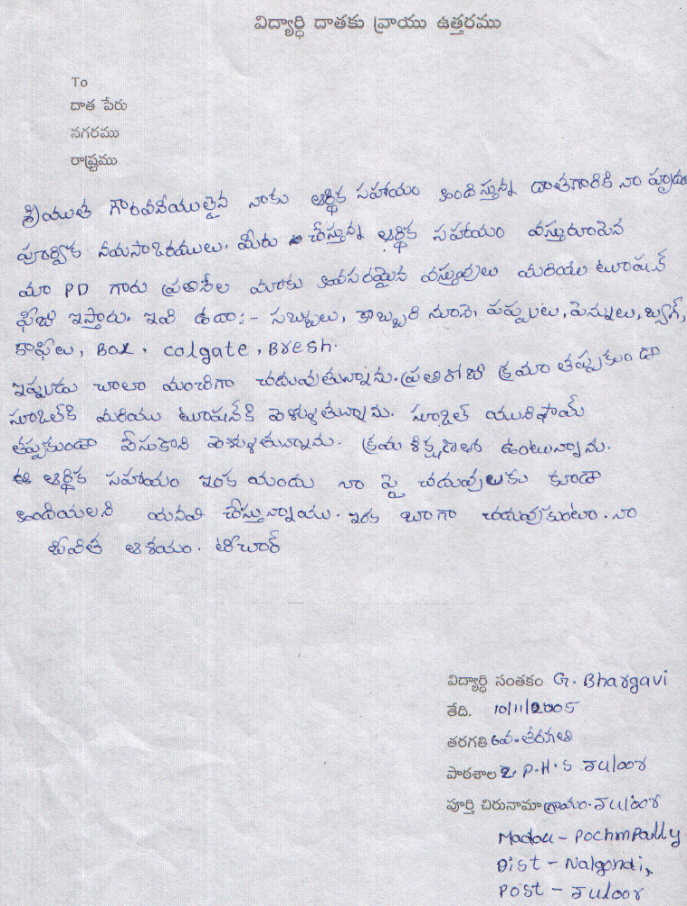 విద్యార్థి దాతకు వ్రాయు ఉత్తరము
To
దాత పేరు
నగరము
రాష్ట్రము
శ్రీయుత గౌరవనీయులైన నాకు ఆర్థిక సహాయం అందిస్తున్న దాతగారికి నా హృదయ
పూర్వక నమసాఒరములు. మీరు చేస్తున్న ఆర్థిక సహాయం వస్తురూపేన
మా PD గారు ప్రతినెల మాకు అవసరమైన వస్తువులు మరియు టూషన్
ఫీజు ఇస్తారు. ఇవి ఉదా:- సబ్బులు, కొబ్బరి నూనె, పప్పులు, పెన్నులు, బ్యాగ్,
కాఫీలు, Box, Colgate, Bresh.
ఇప్పుడు చాలా మంచిగా చదువుతున్నాను. ప్రతిరోజు క్రమం తప్పకుండా
స్కూల్‌కి మరియు టూషన్‌కి వెళ్ళుతున్నాను. స్కూల్ యునిఫామ్
తప్పకుండా వేసుకొని వెళ్ళుతున్నాను. క్రమశిక్షణతో ఉంటున్నాను.
ఈ ఆర్థిక సహాయం ఇంక ముందు నా పై చదువులకు కూడా
అందియలని మనవి చేస్తున్నాను. ఇంక బాగా చదువుకుంటా. నా
జీవిత ఆశయం. టీచార్
విద్యార్థి సంతకం G. Bhargavi
తేది. 10/11/2005
తరగతి 6వ. తరగతి
పాఠశాల Z P.H.S Juloor
పూర్తి చిరునామా గ్రామం. Juloor
Madau - Pochmpally
Dist - Nalgonda,
Post - Juloor